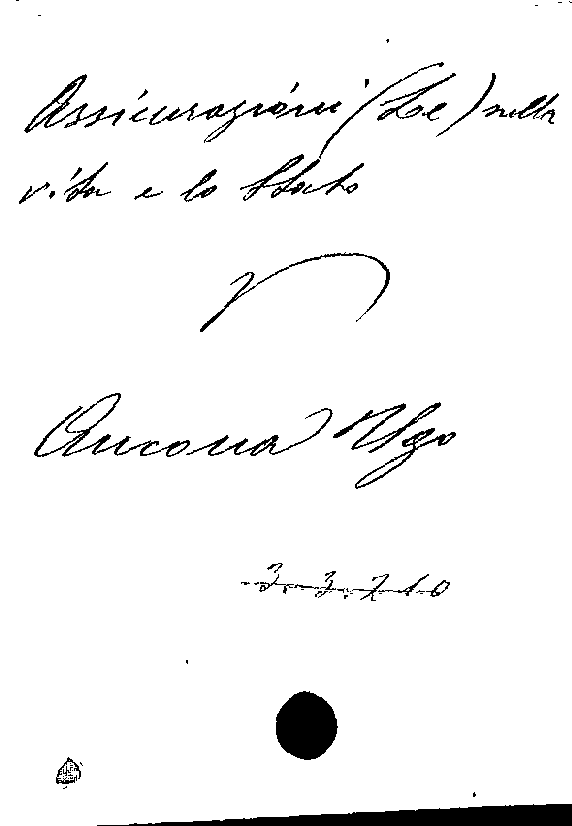 Assicurazioni (Le) nella
vita e lo Stato
V
Ancona Ugo
3.3.210